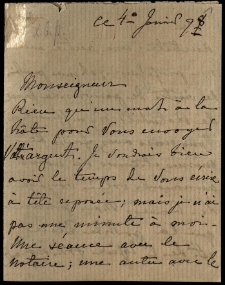 ce 4 Juin 98
Monseigneur
Rien qu'un mot à la
hâte pour vous envoyer
l'argent. Je voudrais bien
avoir le temps de vous écrire
à tête reposée; mais je n'ai
pas une minute à moi.
Une séance avec le
notaire; une autre avec le